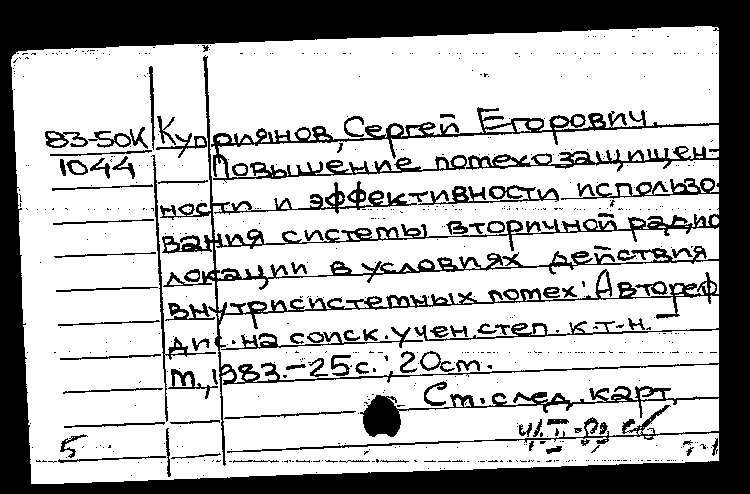 83-50К Куприянов, Сергей Егорович.
1044 Повышение помехозащищен-
ности и эффективности использо-
вания системы вторичной радио
локации в условиях действия
внутрисистемных помех: Автореф
дис. на соиск. учен. степ. к.т.н. –
М., 1983. – 25 с.; 20 см.
См. след. карт.
5